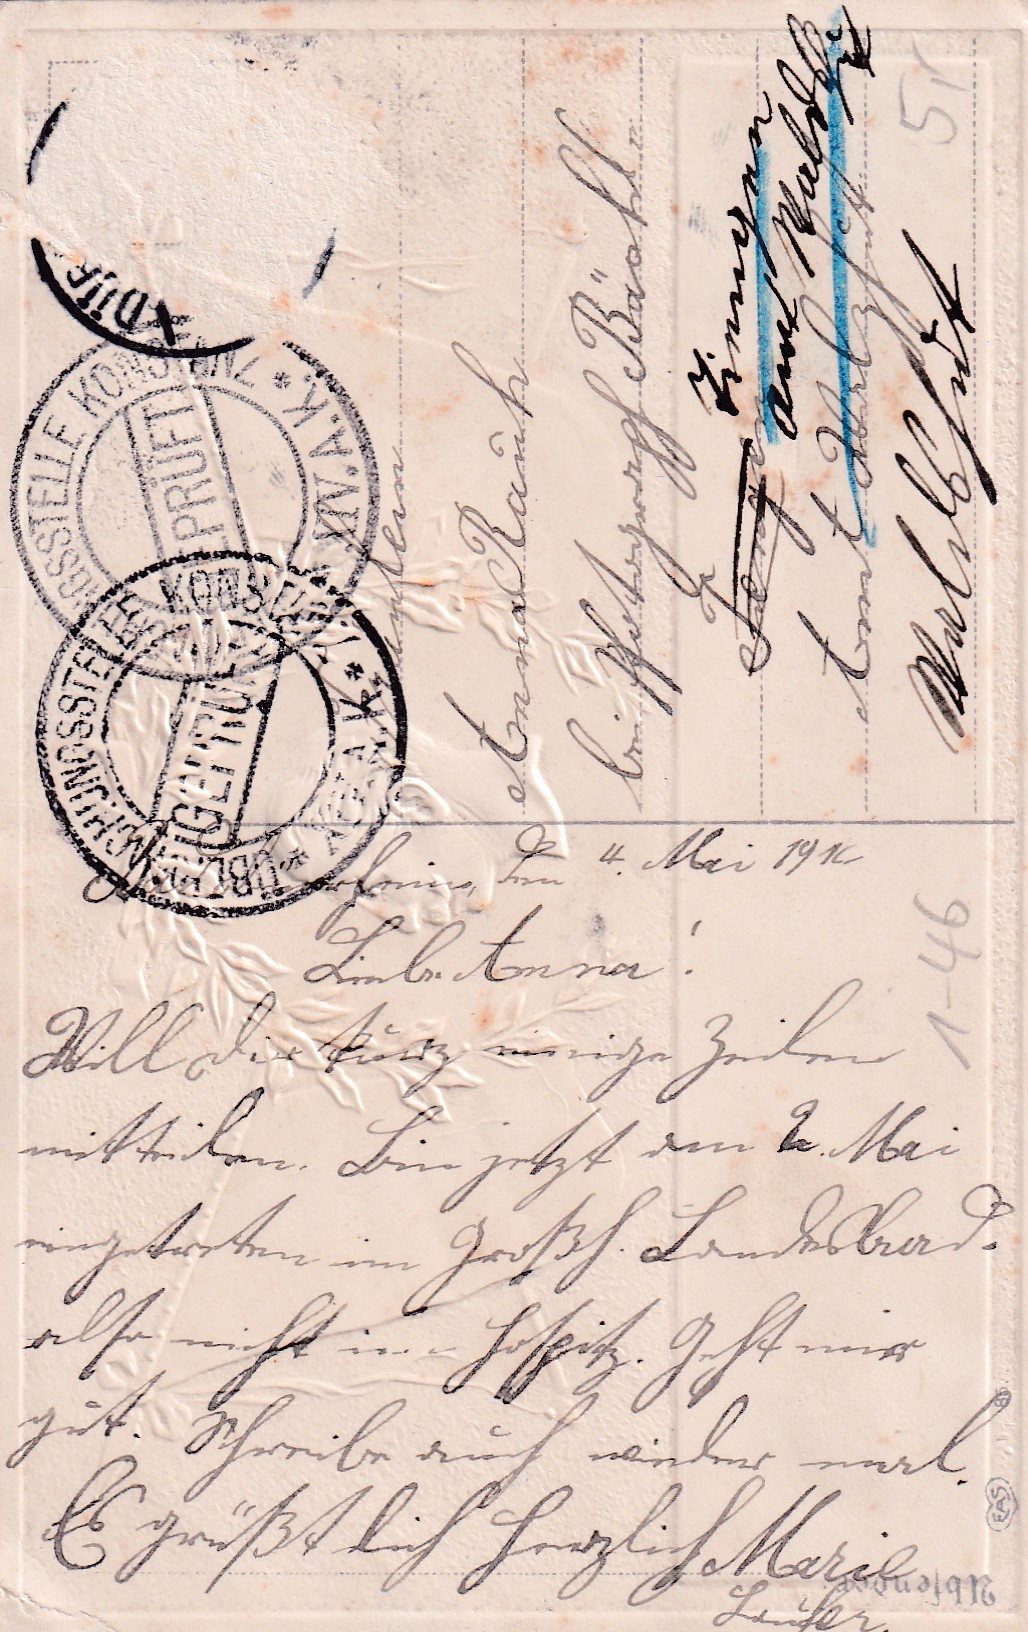 DÜR
ÜBERWACHUNGSSTELLE KONSTANZ * XIV. A.K. *
GEPRÜFT
ÜBERWACHUNGSSTELLE KONSTANZ * XIV. A.K. *
GEPRÜFT
Anna Rauch
bei
Z.
Zinningen
amt Waldshut
amt Waldshut
Waldshut
5r
1-46
den 4. Mai 191
Liebe Anna!
Will dir kurz einige Zeilen
mitteilen. Bin jetzt am 2. Mai
eingetreten im Großh. Landesbad.
also nicht im Hospitz. Geht mir
gut. Schreibe auch wieder mal.
Es grüßt dich herzlich Marie
Absender
EAS